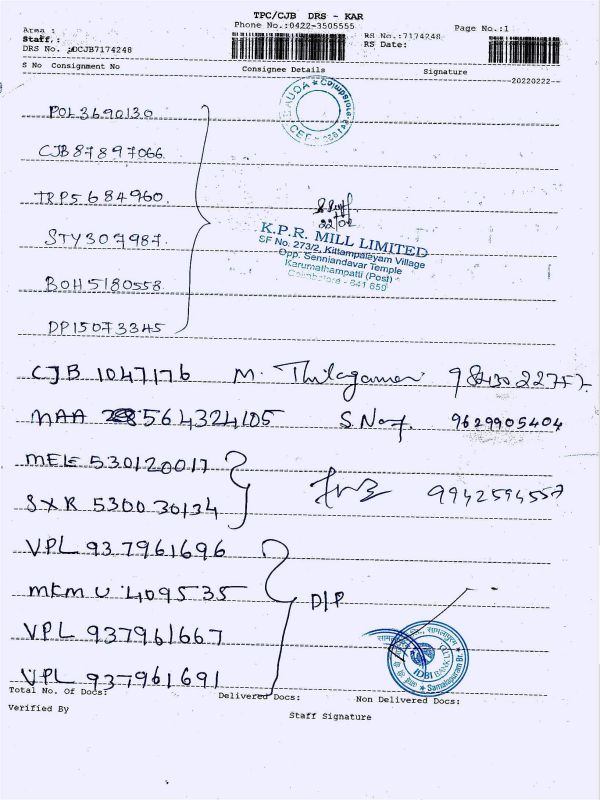 TPC/CJB DRS - KAR
Phone No.:0422-3505555 Page No.:1
Area :
Staff.:
DRS No. :DCJB7174248
RS No.:7174248
RS Date:
S No Consignment No Consignee Details Signature
20220222
POL3690130
CJB87897066
TRP5684960.
STY307987.
BOH5180558
DP15073345
22/02
K.P.R. MILL LIMITED
SF No. 273/2, Kittampalayam Village
Opp. Senniandavar Temple
Karumathampatti (Post)
Coimbatore - 641 659
CJB 1047176 M. 98430 22757.
MAA 564324105 S. 9629905404
MEE 530120017
SXR 530030134 9942594557
VPL 937961696
MKM U 409535 D/P
VPL 937961667
VPL 937961691
IDBI BANK
Samalapuram Br.
Total No. Of Docs: Delivered Docs: Non Delivered Docs:
Verified By
Staff Signature